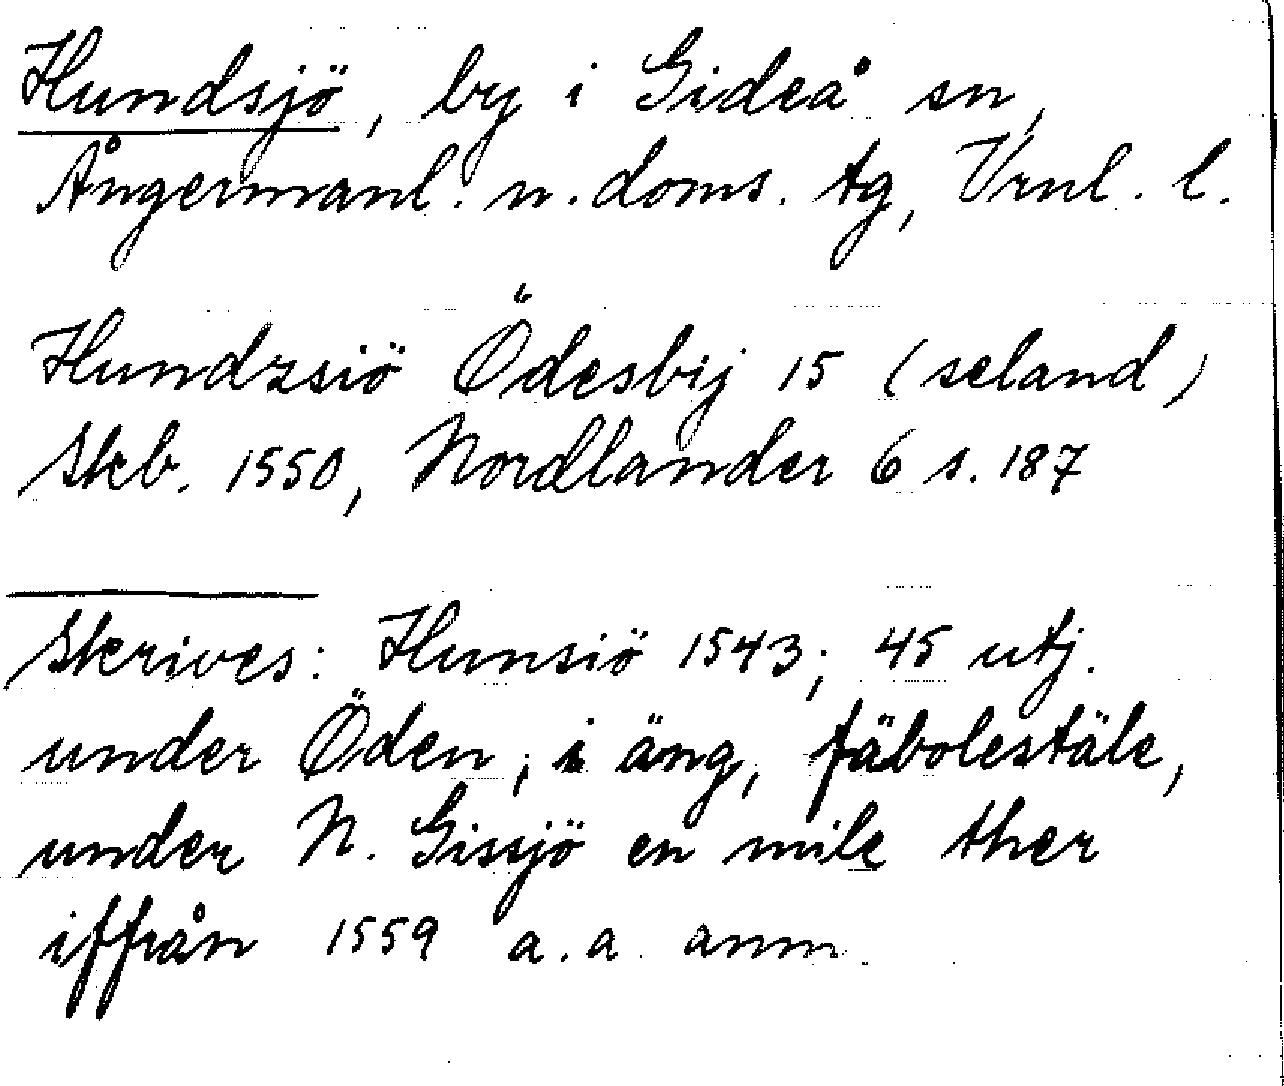 Hundsjö, by i Gideå sn,
Ångermanl. n. doms. tg, Vrnl. l.
Hundzsiö Ödesbij 15 (seland)
Skb. 1550, Nordlander 6 s. 187
Skrives: Hunsiö 1543; 45 utj.
under Öden, i äng, fäbolestäle,
under N. Gissjö en mile ther
iffrån 1559 a. a. anm.